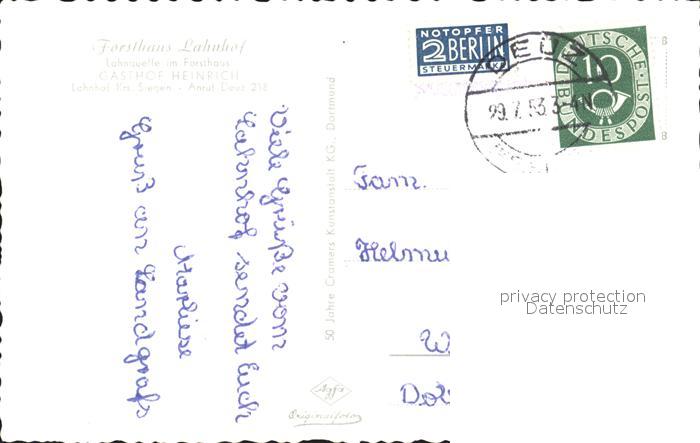 Forsthaus Lahnhof
Lahnquelle im Forsthaus
GASTHOF HEINRICH
Lahnhof Krs. Siegen - Anruf Deuz 218
Viele Grüße vom
Lahnhof sendet Euch
Marliese
Gruß an Landgrafs
50 Jahre Cramers Kunstanstalt KG., Dortmund
Agfa
Originalfoto
NOTOPFER
2 BERLIN
STEUERMARKE
DEUTSCHE
10
BUNDESPOST
DEUZ
29.7.53.3-4N
Fam.
Helmu
W
Do
privacy protection
Datenschutz